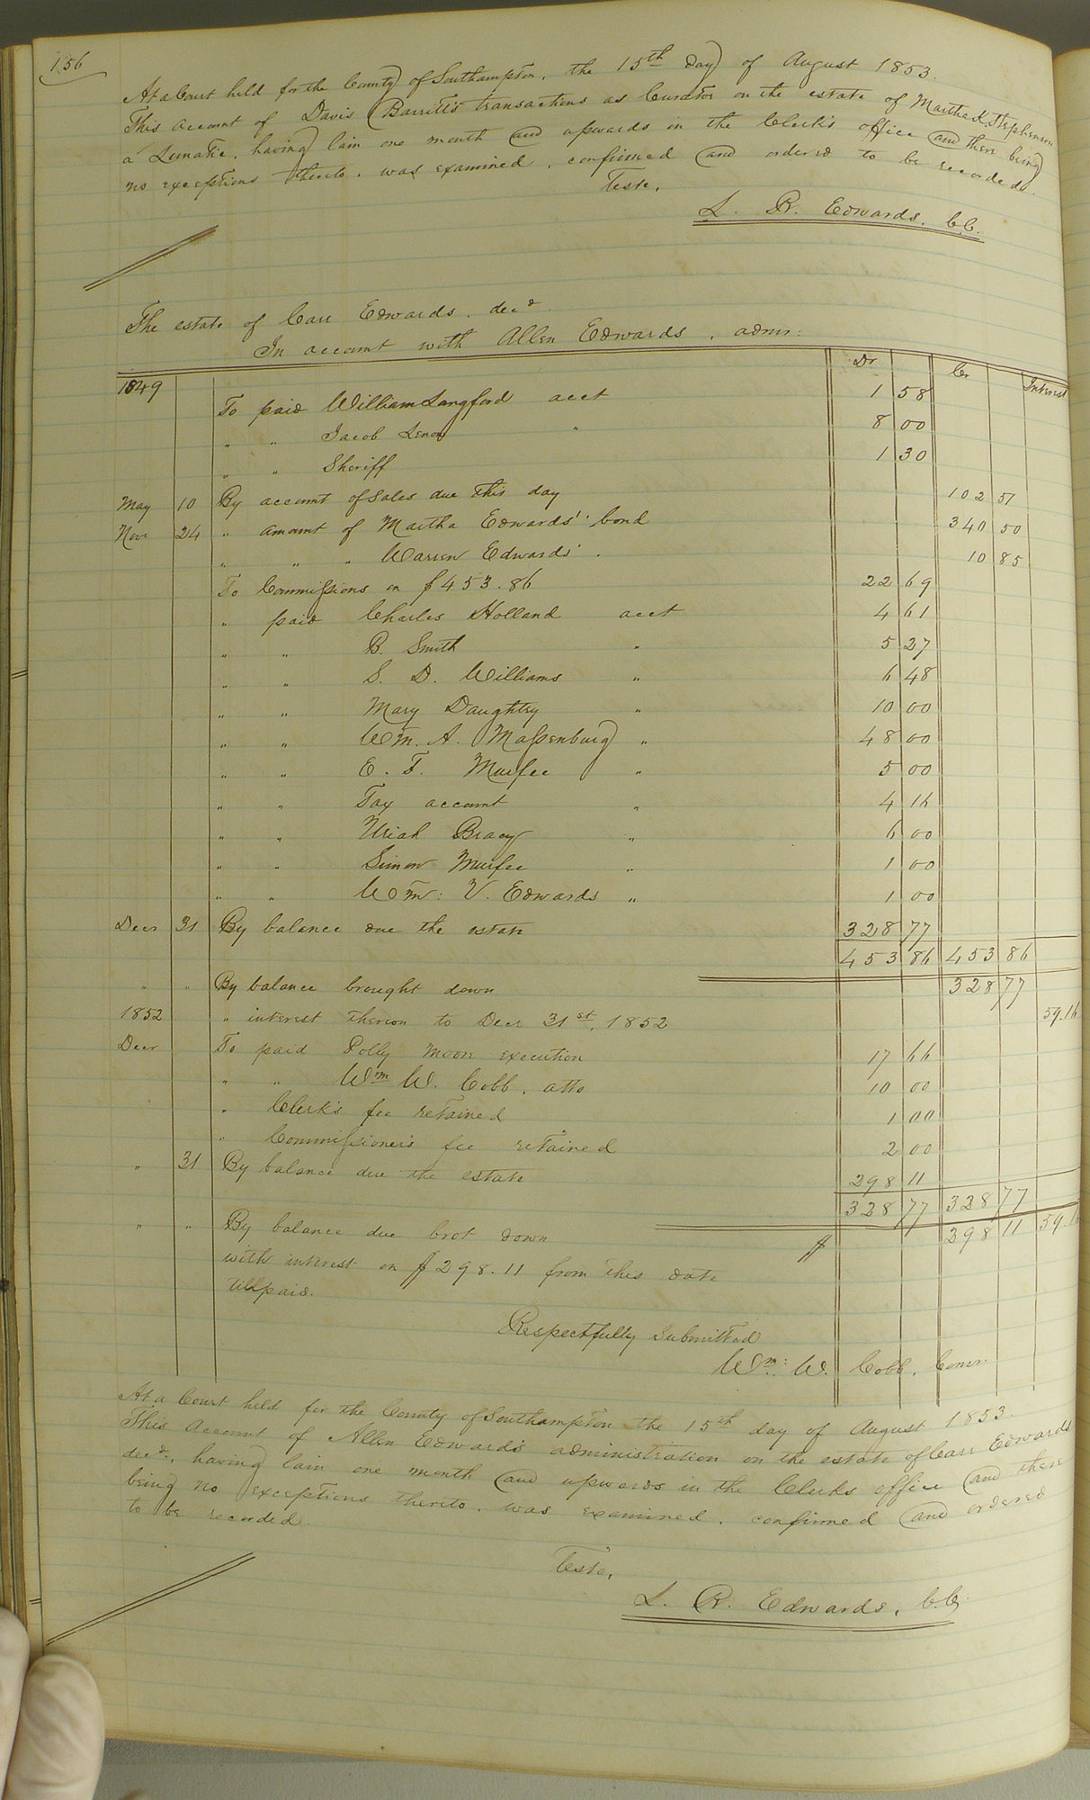 156
At a Court held for the County of Southampton, the 15th day of August 1853.
This account of Davis Barrett's transactions as Curator on the estate of Martha Stephenson
a Lunatic, having lain one month and upwards in the Clerk's office and there being
no exceptions thereto, was examined, confirmed and ordered to be recorded.
Teste,
L. R. Edwards, C.C.
The estate of Carr Edwards, decd
In account with Allen Edwards, admr:
Dr Cr Interest
1849 To paid William Langford acct 1 58
" " Jacob " 8 00
" " Sheriff 1 30
May 10 By account of Sales due this day 102 51
Novr 24 " amount of Martha Edwards' bond 340 50
" " " Warren Edwards' " 10 85
To Commissions on $453.86 22 69
" paid Charles Holland acct 4 61
" " B. Smith " 5 27
" " S. D. Williams " 6 48
" " Mary Daughtry " 10 00
" " Wm. A. Massenburg " 48 00
" " E. T. Murfee " 5 00
" " Tax account " 4 16
" " Uriah Bracy " 6 00
" " Simon Murfee " 1 00
" " Wm: V. Edwards " 1 00
Decr 31 By balance due the estate 328 77
453 86 453 86
" " By balance brought down 328 77
1852 " interest thereon to Decr 31st, 1852 59.16
Decr To paid Polly Moore execution 17 66
" " Wm W. Cobb, atto 10 00
" Clerk's fee retained 1 00
" Commissioner's fee retained 2 00
" 31 By balance due the estate 298 11
328 77 328 77
" " By balance due brot down $ 298 11 59.16
with interest on $298.11 from this date
till paid.
Respectfully Submitted
Wm: W. Cobb, Comr:
At a Court held for the County of Southampton the 15th day of August 1853.
This Account of Allen Edwards administration on the estate of Carr Edwards
decd., having lain one month and upwards in the Clerks office and there
being no exceptions thereto, was examined, confirmed and ordered
to be recorded
Teste,
L. R. Edwards, C.C.